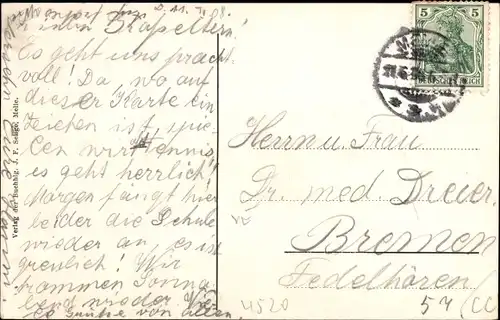 Es geht uns pracht
voll! Da, wo auf
dieser Karte ein
Zeichen ist, spie-
len wir Tennis
es geht herrlich!
Morgen fängt hier
leider die Schule
wieder an, es ist
greulich! Wir
kommen Sonna
bend wieder.
Es grüße von allen,
Verlag der Buchhdlg. J. F. Melle.
5 5
DEUTSCHES REICH
Herrn u. Frau
Dr. med Dreier
Bremen
Fedelhören
4520